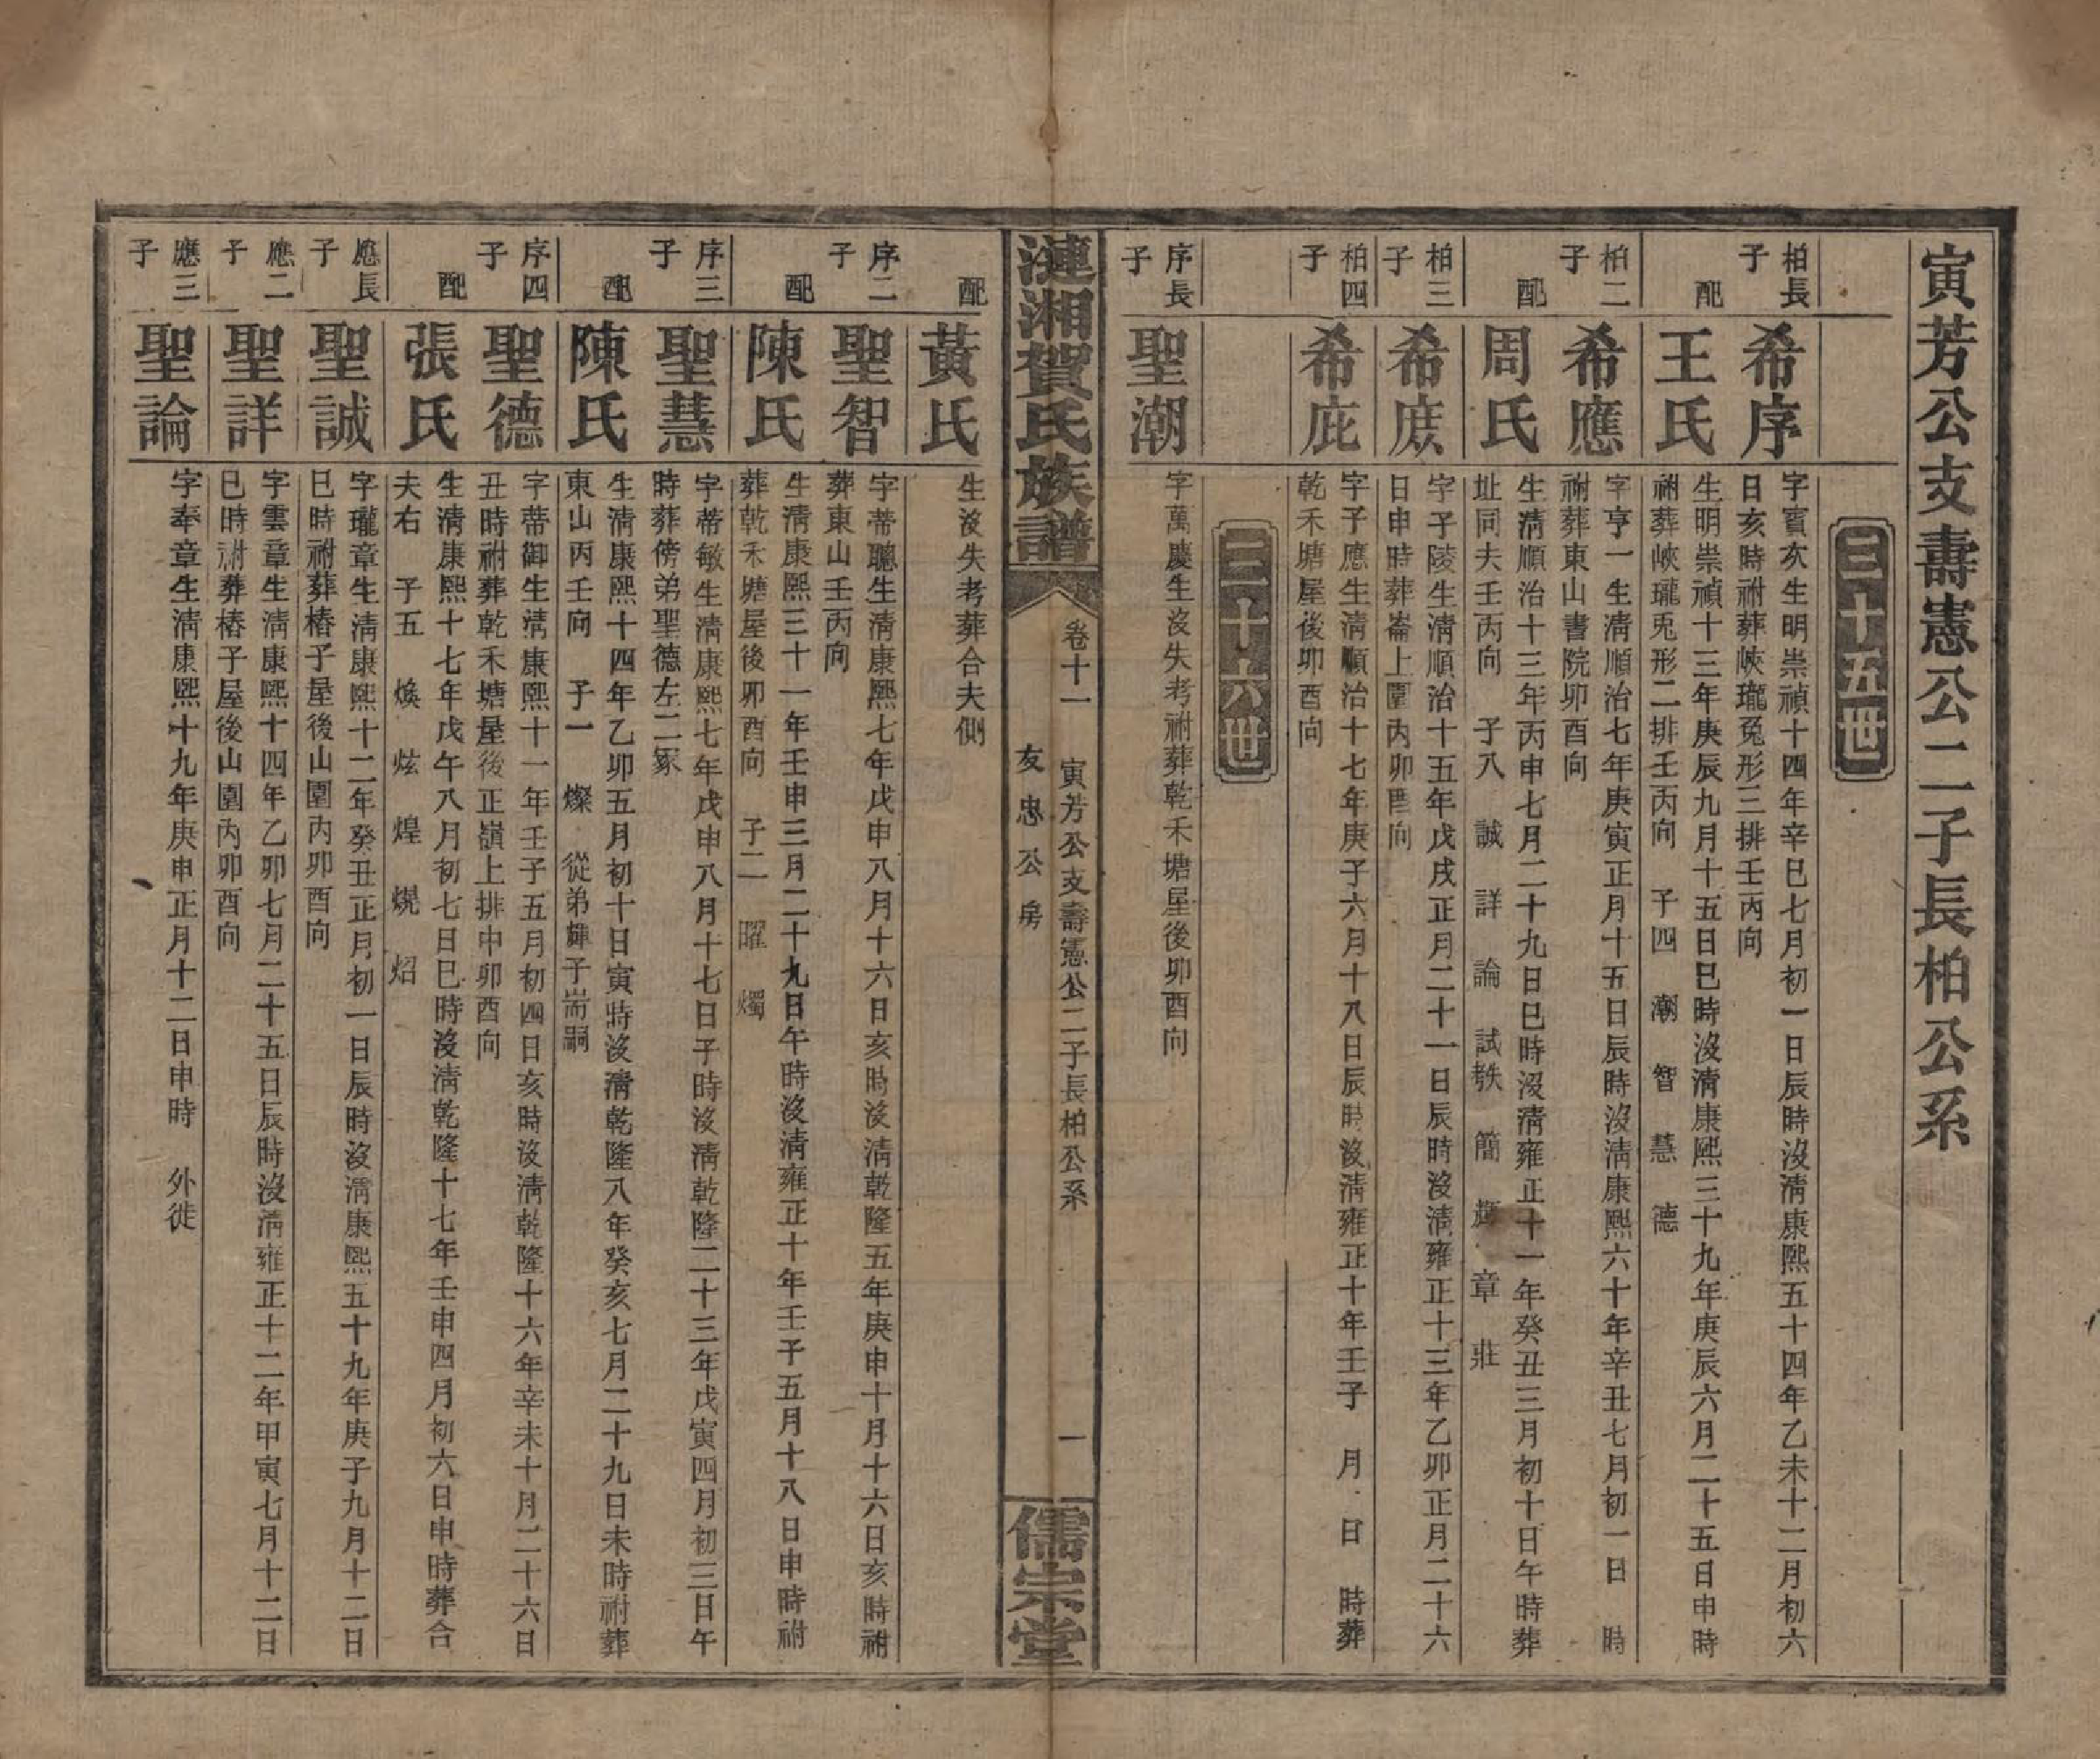 寅芳公支壽憲公二子長柏公系
三十五世
柏長子
希序
字賓次生明崇禎十四年辛巳七月初一日辰時沒清康熙五十四年乙未十二月初六
日亥時祔葬峽瓏兔形三排壬丙向
配
王氏
生明崇禎十三年庚辰九月十五日巳時沒清康熙三十九年庚辰六月二十五日申時
祔葬峽瓏兎形二排壬丙向 子四 潮 智 慧 德
柏二子
希應
字亨一生清順治七年庚寅正月十五日辰時沒清康熙六十年辛丑七月初一日 時
祔葬東山書院卯酉向
配
周氏
生清順治十三年丙申七月二十九日巳時沒清雍正十一年癸丑三月初十日午時葬
址同夫壬丙向 子八 誠 詳 論 試 簡 章 莊
柏三子
希庶
字子陵生清順治十五年戊戌正月二十一日辰時沒清雍正十三年乙卯正月二十六
日申時葬崙上圍內卯酉向
柏四子
希庇
字子應生清順治十七年庚子六月十八日辰時沒清雍正十年壬子 月 日 時葬
乾禾塘屋後卯酉向
三十六世
序長子
聖潮
字萬慶生沒失考祔葬乾禾塘屋後卯酉向
漣湘賀氏族譜
卷十一 寅芳公支壽憲公二子長柏公系 一
友忠公房
儒宗堂
配
黃氏
生沒失考葬合夫側
序二子
聖智
字蒂聰生清康熙七年戊申八月十六日亥時沒清乾隆五年庚申十月十六日亥時祔
葬東山壬丙向
配
陳氏
生清康熙三十一年壬申三月二十九日午時沒清雍正十年壬子五月十八日申時祔
葬乾禾塘屋後卯酉向 子二 曜 燭
序三子
聖慧
字蒂敏生清康熙七年戊申八月十七日子時沒清乾隆二十三年戊寅四月初三日午
時葬傍弟聖德左二冢
配
陳氏
生清康熙十四年乙卯五月初十日寅時沒清乾隆八年癸亥七月二十九日未時祔葬
東山丙壬向 子一 燦 從弟輝子耑嗣
序四子
聖德
字蒂御生清康熙十一年壬子五月初四日亥時沒清乾隆十六年辛未十月二十六日
丑時祔葬乾禾塘屋後正嶺上排中卯酉向
配
張氏
生清康熙十七年戊午八月初七日巳時沒清乾隆十七年壬申四月初六日申時葬合
夫右 子五 煥 炫 煌 燒 炤
應長子
聖誠
字瓏章生清康熙十二年癸丑正月初一日辰時沒清康熙五十九年庚子九月十二日
巳時祔葬椿子屋後山圍內卯酉向
應二子
聖詳
字雲章生清康熙十四年乙卯七月二十五日辰時沒清雍正十二年甲寅七月十二日
巳時祔葬椿子屋後山圍內卯酉向
應三子
聖論
字奉章生清康熙十九年庚申正月十二日申時 外徙